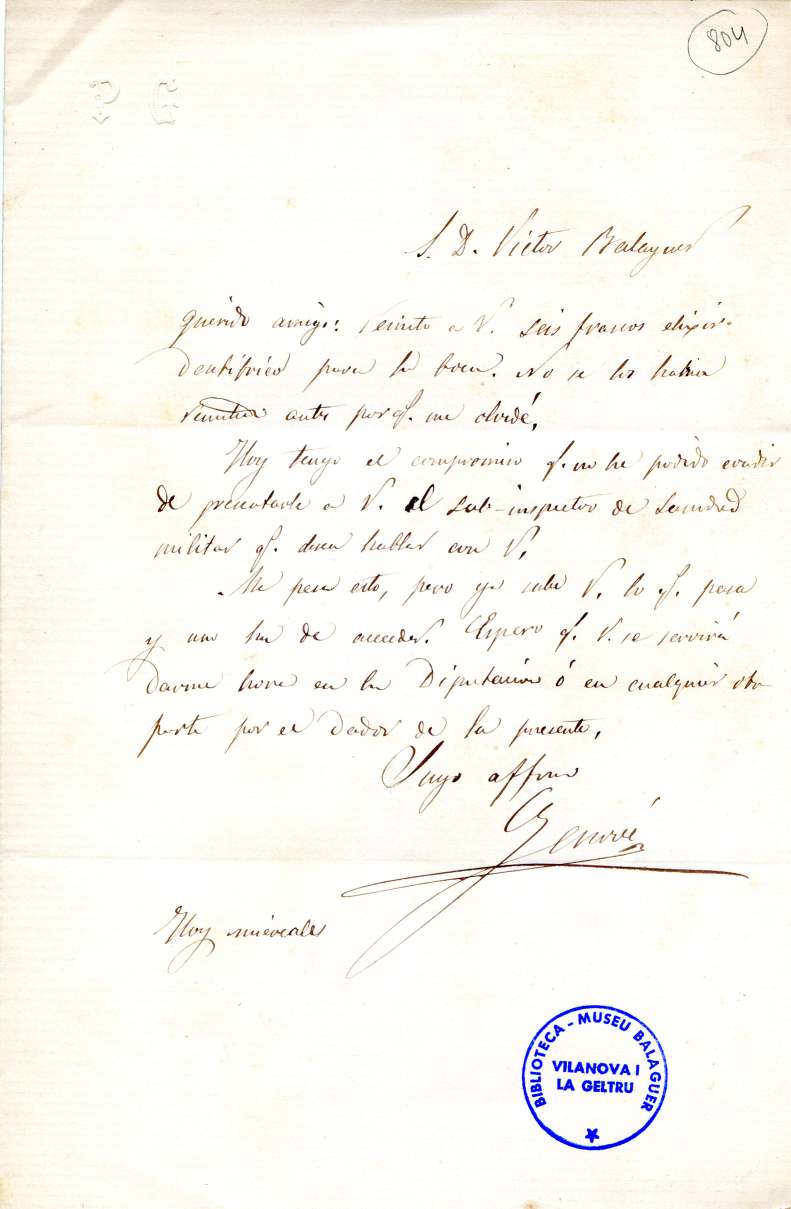 804
S. D. Victor Balaguer
Querido amigo: remito a V. seis frascos elixir
dentifrico para la boca. No se los habia
remitido antes por q. me olvidé.
Hoy tengo el compromiso q. no he podido evadir
de presentarle a V. al sub-inspector de Sanidad
militar q. desea hablar con V.
Me pesa esto, pero ya sabe V. lo q. pasa
y uno ha de acceder. Espero q. V. se servirá
darme hora en la Diputacion ó en cualquier otra
parte por el dador de la presente.
Suyo affmo
Genové
Hoy miércoles
BIBLIOTECA - MUSEU BALAGUER
VILANOVA I
LA GELTRU